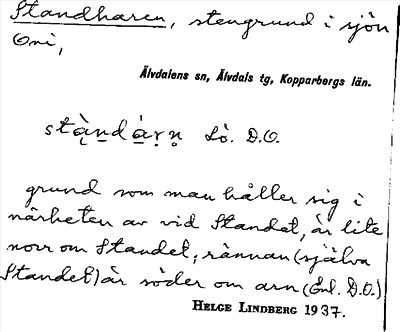 Standharen, stengrund i sjön
Oni,
Älvdalens sn, Älvdals tg, Kopparbergs län.
stą̀n̲dą̀r̥ṇ̥ Lò. D.O.
grund som man håller sig i
närheten av vid Standet, är lite
norr om Standet; rännan (själva
Standet) är söder om arn (Enl. D.O.)
HELGE LINDBERG 1937.